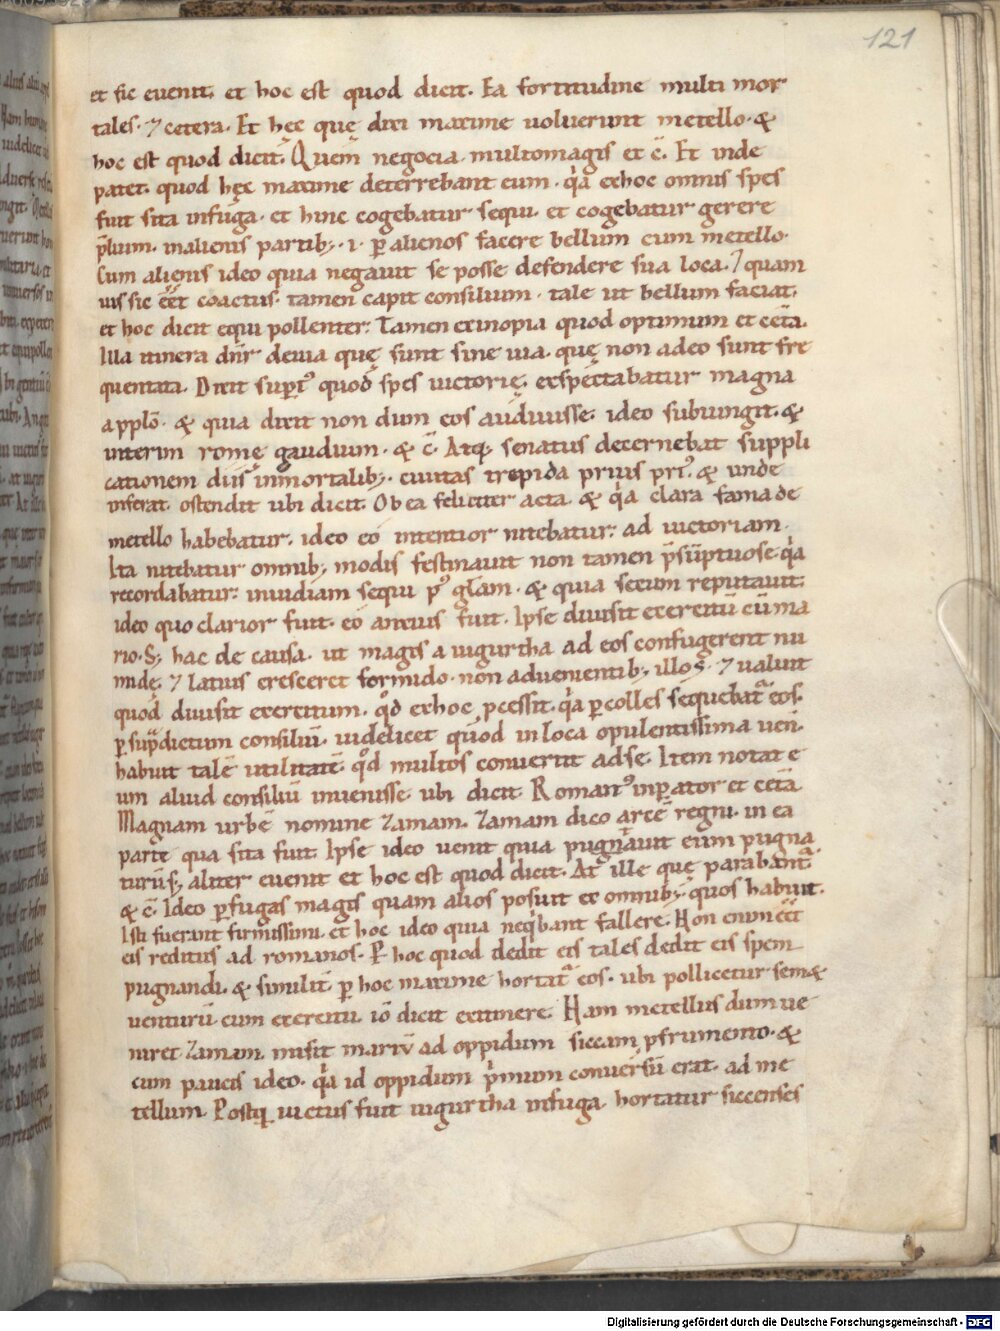 121
et sic euenit. et hoc est quod dicit. Ea fortitudine multi mor
tales. ⁊ cetera. Et hęc quę dixi maxime uoluerunt metello. &
hoc est quod dicit. Quem negocia. multomagis et c̄. Et inde
patet. quod hęc maxime deterrebant eum. q̇a exhoc omnis spes
fuit sita infuga. et hinc cogebatur sequi. et cogebatur gerere
p̄lium. inalienis partib;. i. p̱ alienos facere bellum cum metello.
Cum alienis ideo quia negauit se posse defendere sua loca. ⁊ quam
uis sic eēt coactus. tamen capit consilium. tale ut bellum faciat.
et hoc dicit equi pollenter: Tamen exinopia quod optimum et cet̄a.
Illa itinera dn̄r deuia quę sunt sine uia. quę non adeo sunt fre
quentata. Dixit supͥꝰ quod spes uictorię. exspectabatur magna
applō. & quia dixit non dum eos audiuisse. ideo subiungit. &
interim romę gaudium. & c̄. Atq; senatus decernebat suppli
cationem diis inmortalib;. ciuitas trepida prius prͥꝰ. & unde
inferat. ostendit ubi dicit. Ob ea feliciter acta. & q̇a clara fama de
metello habebatur. ideo eo intentior nitebatur: ad uictoriam.
Ita nitebatur omnib; modis festinauit non tamen p̄sūptuose. q̇a
recordabatur: inuidiam sequi pꝰ gl̄am. & quia secum reputauit:
ideo quo clarior fuit. eo anxius fuit. Ipse diuisit exercitū cū ma
rio. S; hac de causa. ut magis a iugurtha ad eos confugerent nu
midę. ⁊ latius cresceret formido. non aduenientib; illos. ⁊ ualuit
quod diuisit exercitum. qͦd exhoc p̱cessit. q̇a p̱ colles sequebatᷣ eos.
p̱ sup̄dictum consiliū. uidelicet quod in loca opulentissima uen̄.
habuit talē utilitatē. qͦd multos conuertit adse. Item notat e
um aliud consiliū inuenisse. ubi dicit. Romanꝰ inp̱ator et cet̄a
Magnam urbē nomine zamam. Zamam dico arcē regni. in ea
parte qua sita fuit. Ipse ideo uenit quia pugnauit eum pugna
turū. S; aliter euenit et hoc est quod dicit. At ille quę parabantᷣ.
& c̄. Ideo p̱fugas magis quam alios posuit ex omnib;. quos habuit.
Isti fuerant firmissimi. et hoc ideo quia neq̇bant fallere. Non enim eēt
eis reditus ad romanos. P̱ hoc quod dedit eis tales dedit eis spem
pugnandi. & similit̄ p̱ hoc maxime hortatᷣ eos. ubi pollicetur sem&
uenturū cum exercitu. iō dicit extimere. Nam metellus dum ue
niret Zamam. misit mariū ad oppidum siccam p̱ frumento. &
cum paucis ideo. q̇a id oppidum p̄mum conuersū erat. ad me
tellum. Postq̱ uictus fuit iugurtha infuga. hortatur siccenses
Digitalisierung gefördert durch die Deutsche Forschungsgemeinschaft - DFG